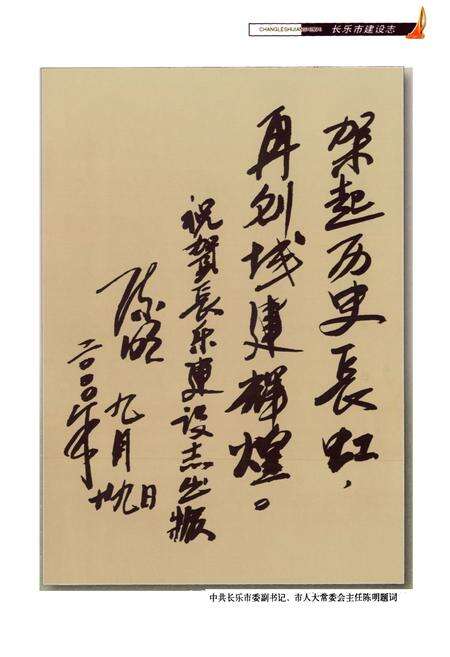 CHANGLESHIJIANSHEZHI 长乐市建设志
架起历史長虹，
再创城建辉煌。
祝贺長乐建设志出版
陈明
二000年
九月
廿九日
中共长乐市委副书记、市人大常委会主任陈明题词